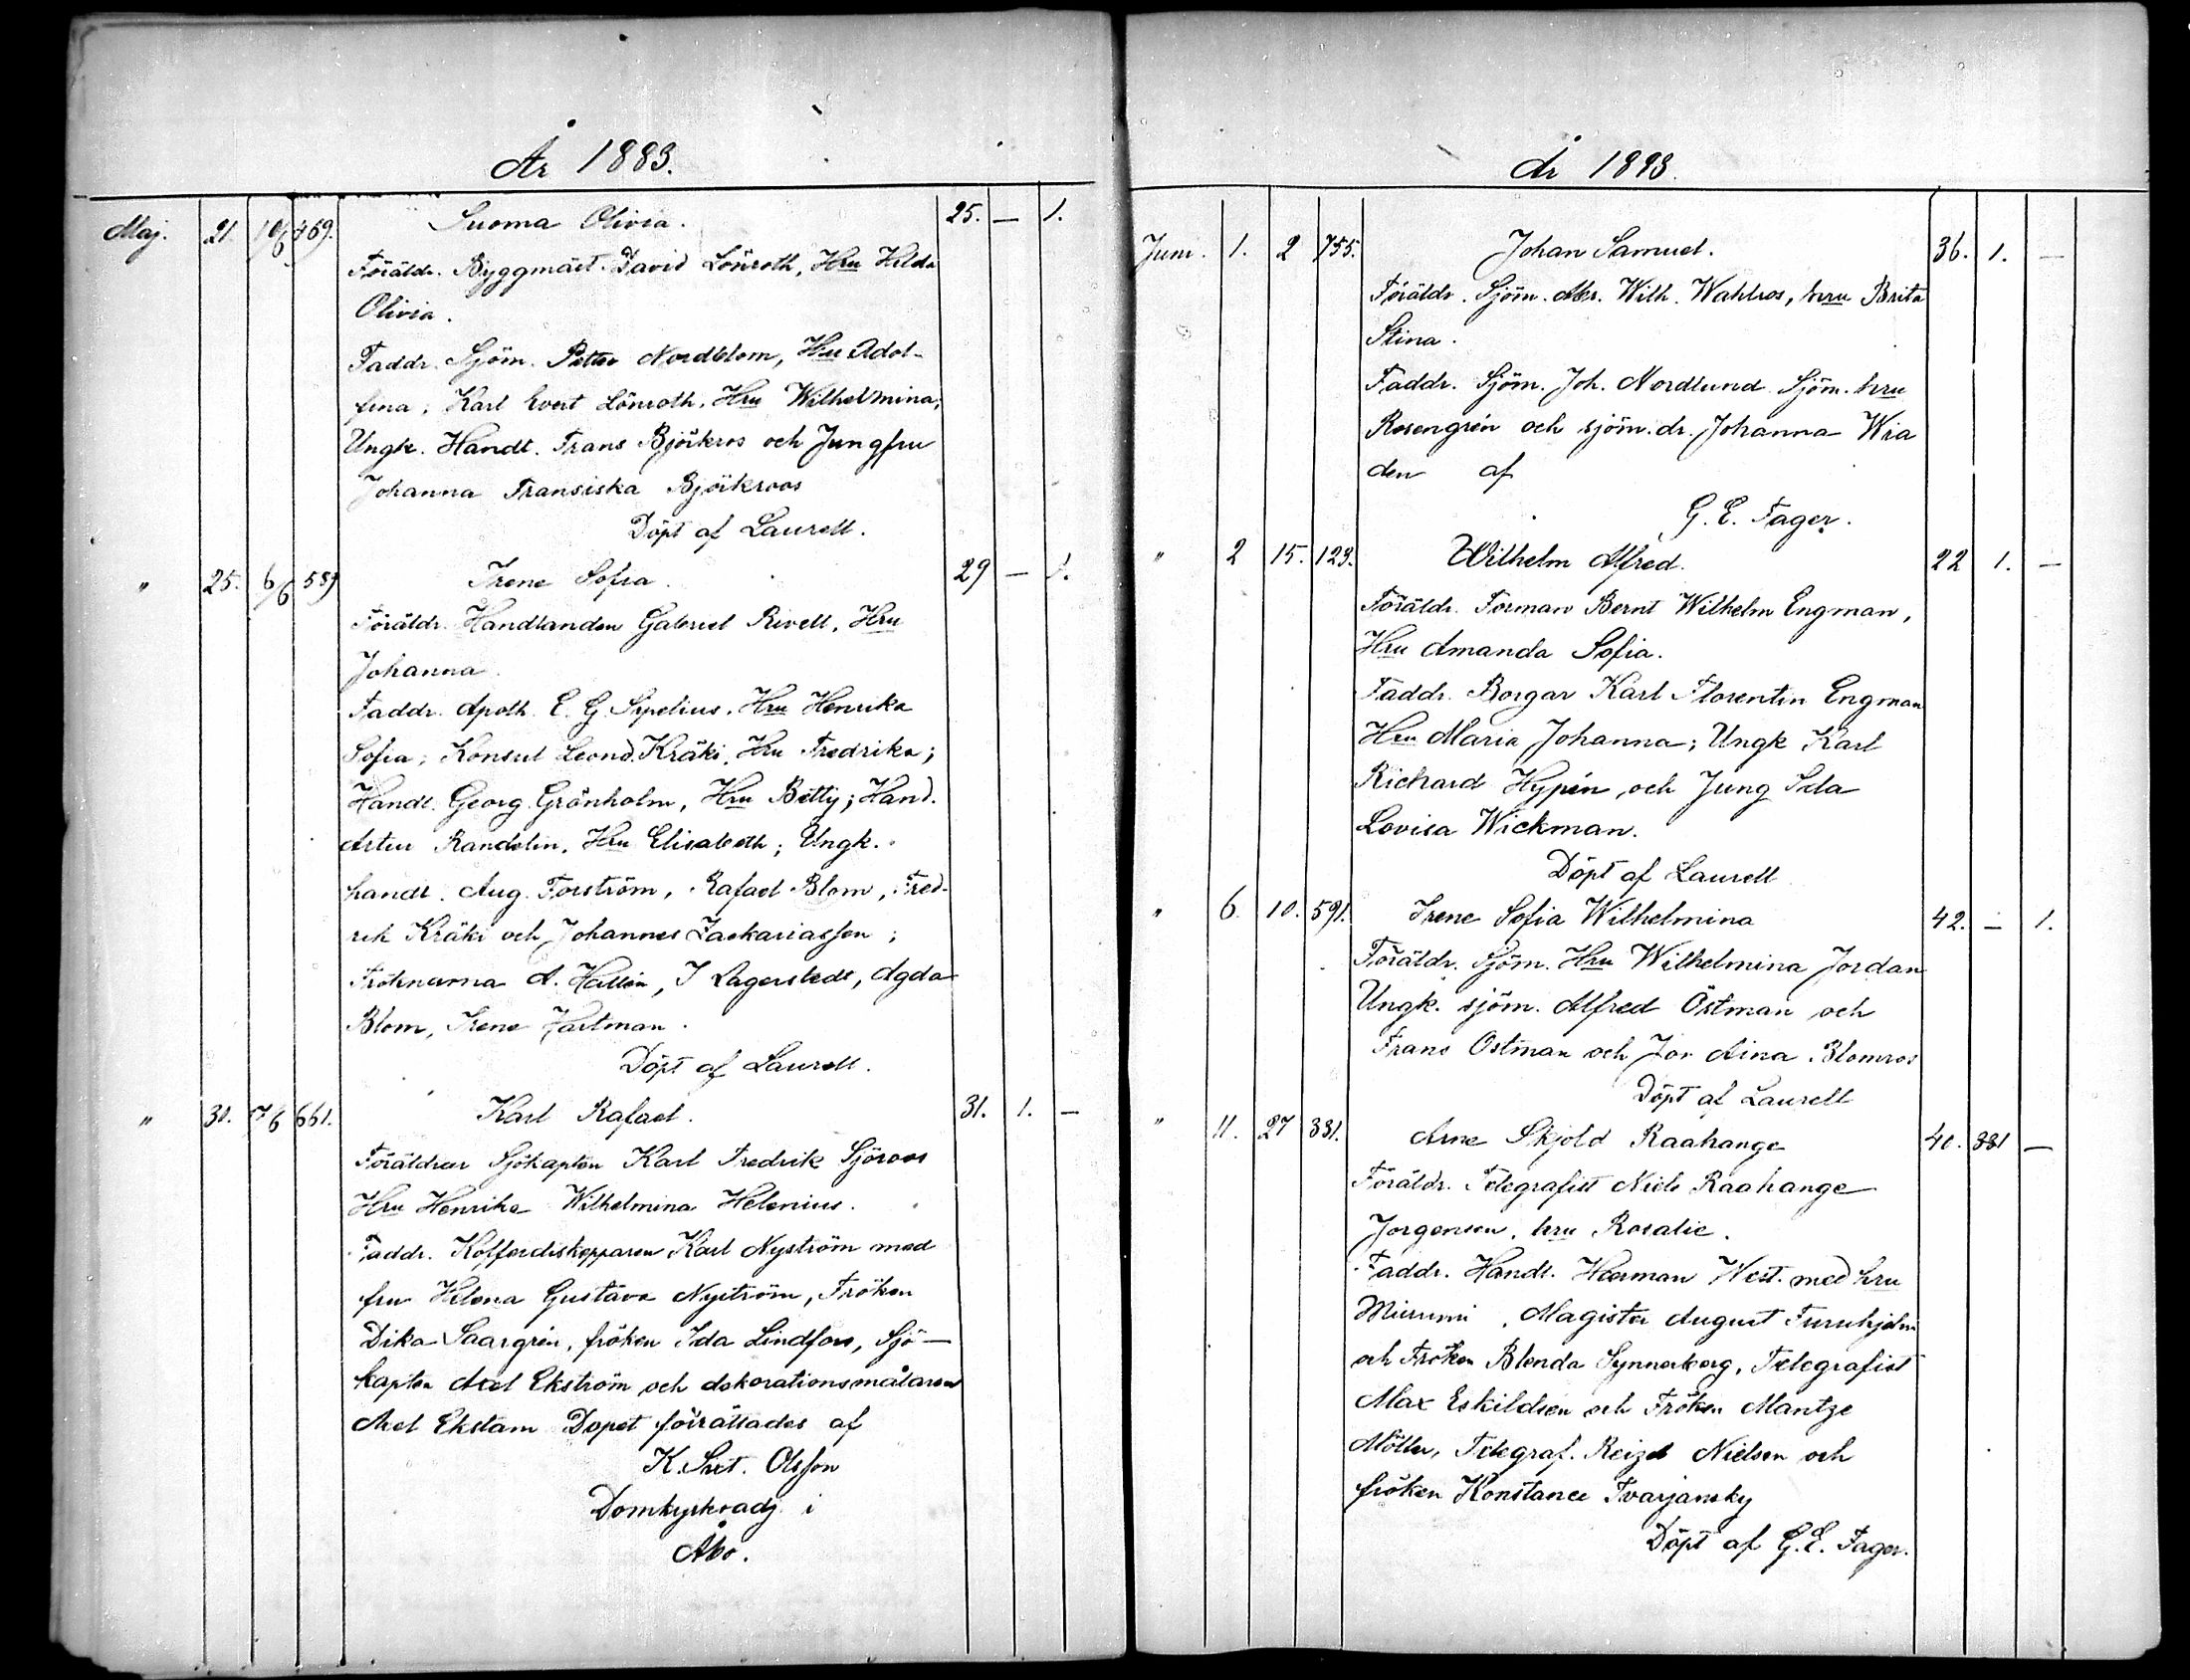 År 1883.
Maj. 21. 10/6 469. Suoma Olivia. 25. — 1.
Föräldr. Byggmäst. David Lönroth, Hru Hilda
Olivia.
Faddr. Sjöm. Petter Nordblom, Hru Adol-
fina; Karl Evert Lönroth, Hru Wilhelmina;
Ungk. Handl. Frans Björkros och Jungfru
Johanna Fransiska Björkroos
Döpt af Laurell.
" 25. 6/6 589 Irene Sofia. 29 — 1.
Föräldr. Handlanden Gabriel Rivell, Hru
Johanna
Faddr. Apoth. E. G. Sipelius, Hru Henrika
Sofia; Konsul Leond. Kräki, Hru Fredrika;
Handl. Georg Grönholm, Hru Betty; Hand.
Artur Randelin, Hru Elisabeth; Ungk.
handl. Aug. Forström, Rafael Blom, Fred-
rik Kräki och Johannes Zackariasson;
Fröknarna A. Hallén, I Lagerstedt, Agda
Blom, Irene Hartman.
Döpt af Laurell.
" 30. 7/6 661. Karl Rafael. 31. 1. —
Föräldrar Sjökapten Karl Fredrik Sjöroos
Hru Henrika Wilhelmina Helenius.
Faddr. Kofferdiskepparen Karl Nyström med
fru Helena Gustava Nyström, Fröken
Dika Saargrén, fröken Ida Lindfors, Sjö-
kapten Axel Ekström och dekorationsmålaren
Axel Ekstam Dopet förrättades af
K. Sixt. Olsson
Domkyrkoadj. i
Åbo.
År 1893.
Juni. 1. 2 755. Johan Samuel. 36. 1. —
Föräldr. Sjöm. Abr. Wilh. Wahlros, hru Brita
Stina.
Faddr. Sjöm. Joh. Nordlund Sjöm. hru
Rosengrén och sjöm. dr. Johanna Wia
den af
G. E. Fager.
" 2 15. 123. Wilhelm Alfred. 22 1. —
Föräldr. Forman Bernt Wilhelm Engman,
Hru Amanda Sofia.
Faddr. Borgar Karl Florentin Engman
Hru Maria Johanna; Ungk Karl
Richard Hypén, och Jung Ida
Lovisa Wickman.
Döpt af Laurell
" 6. 10. 591. Irene Sofia Wilhelmina 42. — 1.
Föräldr. Sjöm. Hru Wilhelmina Jordan
Ungk. sjöm. Alfred Östman och
Frans Östman och Jon Aina Blomros
Döpt af Laurell
" 11. 27 331. Arne Skjold Raahange 40. 331 —
Föräldr. Telegrafist Niels Raahange
Jorgensen, hru Rosalie.
Faddr. Handl. Herman West. med hru
Mimmi, Magister August Furuhjelm
och Fröken Blenda Synnerberg, Telegrafist
Max Eskildsen och Fröken Mantze
Möller, Telegraf. Reizel Nielsen och
fröken Konstance Tvarjansky
Döpt af G. E. Fager.